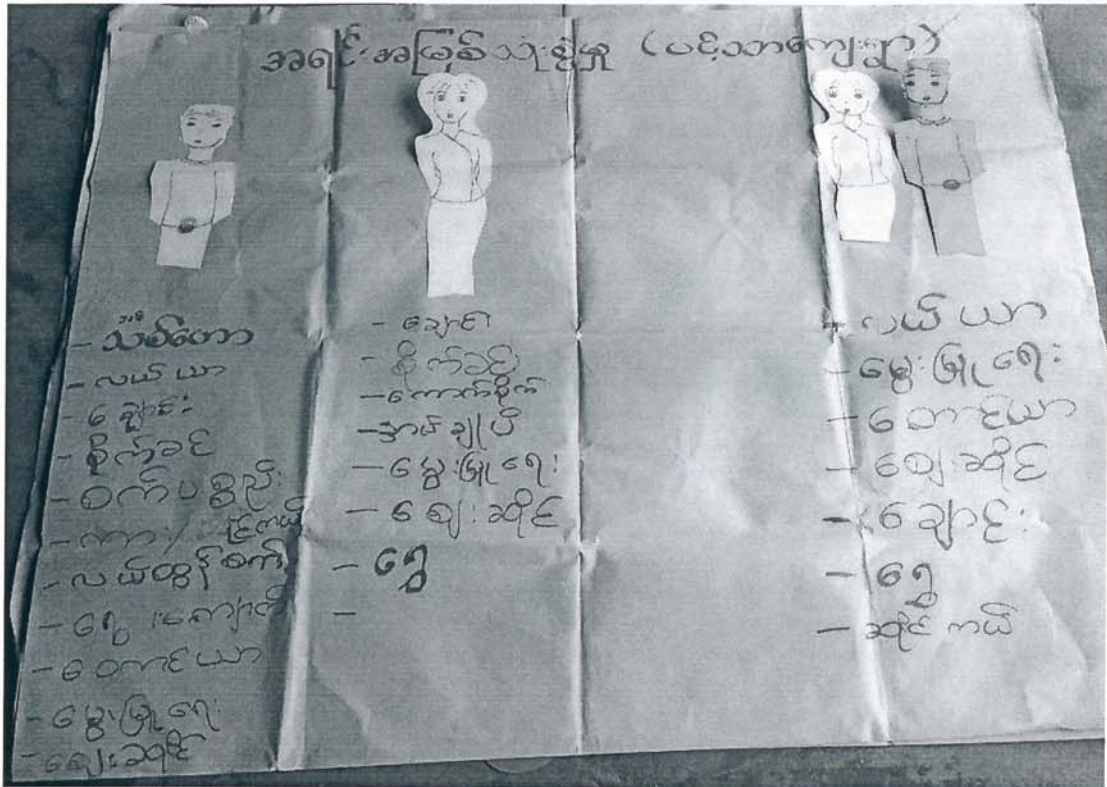 အရင်းအမြစ်သုံးစွဲမှု (ပင့်သာကျေးရွာ)
- သစ်တော
- လယ်ယာ
- ချောင်း
- စိုက်ခင်း
- စက်ပစ္စည်း
- ကား/
- လယ်ထွန်စက်
- ရွှေ၊ ကျောက်
- တောင်ယာ
- မွေးမြူရေး
- ဈေးဆိုင်
- ချောင်း
- စိုက်ခင်း
- ကောက်စိုက်
- အပ်ချုပ်
- မွေးမြူရေး
- ဈေးဆိုင်
- ရွှေ
-
- လယ်ယာ
- မွေးမြူရေး
- တောင်ယာ
- ဈေးဆိုင်
- ချောင်း
- ရွှေ
- ဆိုင်ကယ်